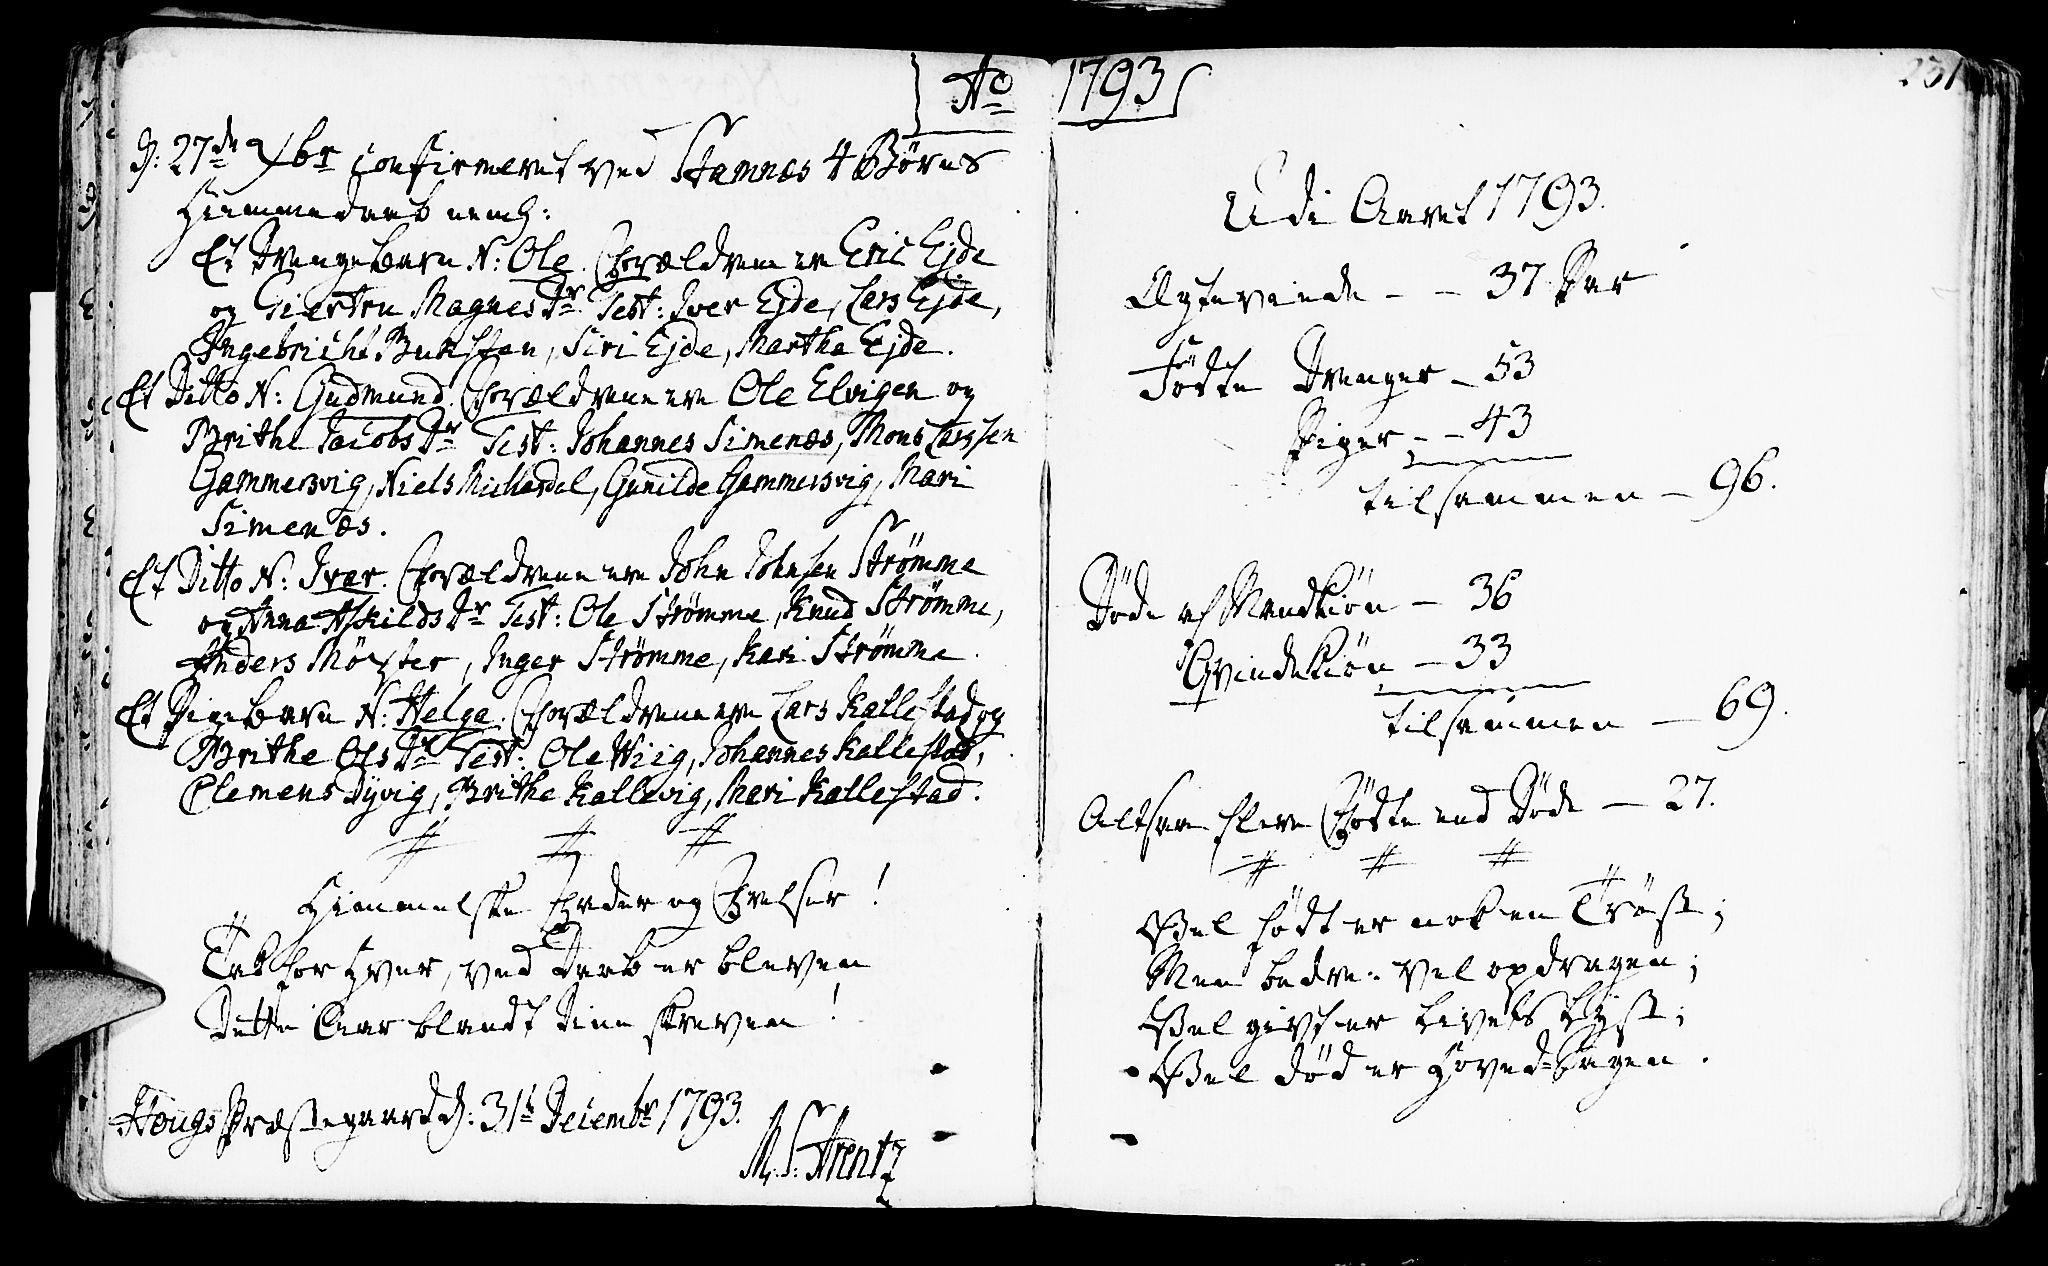 Ao 1793
231
D: 27de Xbr confirmeret ved Stamnæs 4 Børns
Hiemmedaab neml:
Et Drengebarn N: Ole. Forældrene ere Eric Ejde
og Giertru MagnesDr Test: Iver Ejde, Lars Ejde,
Ingebricht Buchsten, Siri Ejde, Martha Ejde.
Et Ditto N: Gudmund. Forældrene ere Ole Elvigen og
Brithe JacobsDr Test: Johannes Simenæs, Mons Larssen
Gammersvig, Niels Mickerdal, Gunilde Gammersvig, Mari
Simenæs.
Et Ditto N: Ivar. Forældrene ere John Johnsen Strømme
og Anna AskildsDr Test: Ole Strømme, Knud Strømme,
Anders Møxter, Inger Strømme, Kari Strømme.
Et Pigebarn N: Helga. Forældrene ere Lars Kallestad og
Brithe OlsDr Test: Ole Wiig, Johannes Kallestad,
Clemens Dyvig, Brithe Kallevig, Mari Kallestad.
Himmelske Fader og Frelser!
Tak for hver, ved Daab er bleven
Dette Aar blandt dine skreven!
Hougs Præstegaard d: 31t Decembr 1793.
M. S: Arentz
Udi Aaret 1793.
Ægteviede - - 37 Par
Fødte Drenger - 53
Piger - - 43
tilsammen - 96.
Døde af Mandkiøn - 36
Qvindekiøn - 33
tilsammen - 69.
Altsaa flere Fødte end Døde - 27.
Vel født er nok en Trøst;
Men bedre: vel opdragen;
Vel givt er Livets Lyst;
Vel død er Hoved-Sagen.